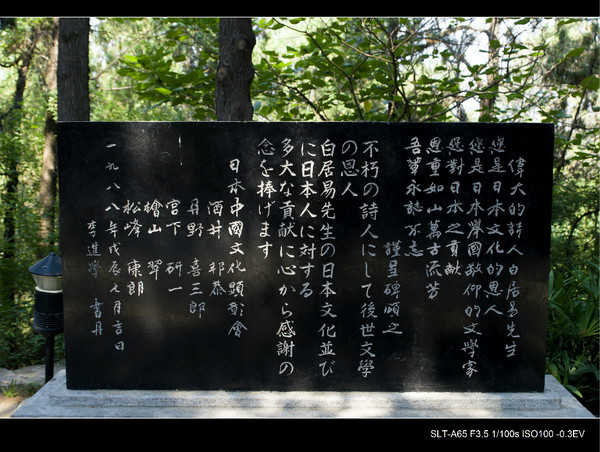 偉大的詩人白居易先生
您是日本文化的恩人
您是日本舉國敬仰的文學家
您對日本之貢献
恩重如山萬古流芳
吾輩永誌不忘
謹呈碑頌之
不朽の詩人にして後世文學
の恩人
白居易先生の日本文化並び
に日本人に対する
多大な貢献に心から感謝の
念を捧げます
日本中國文化顕彰會
酒井 邦恭
丹野 喜三郎
宮下 研一
檜山 翠
松峰 康朗
一九八八年戊辰七月吉日
李進學 書丹
SLT-A65 F3.5 1/100s ISO100 -0.3EV